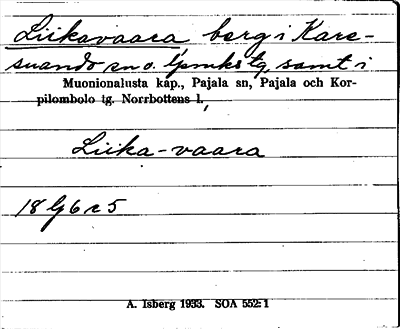 Liikavaara berg i Kare-
suando sn o. lpmks tg samt i
Muonionalusta kap., Pajala sn, Pajala och Kor-
pilombolo tg. Norrbottens l.,
Liika-vaara
18 G 6 c 5
A. Isberg 1933. SOA 552:1